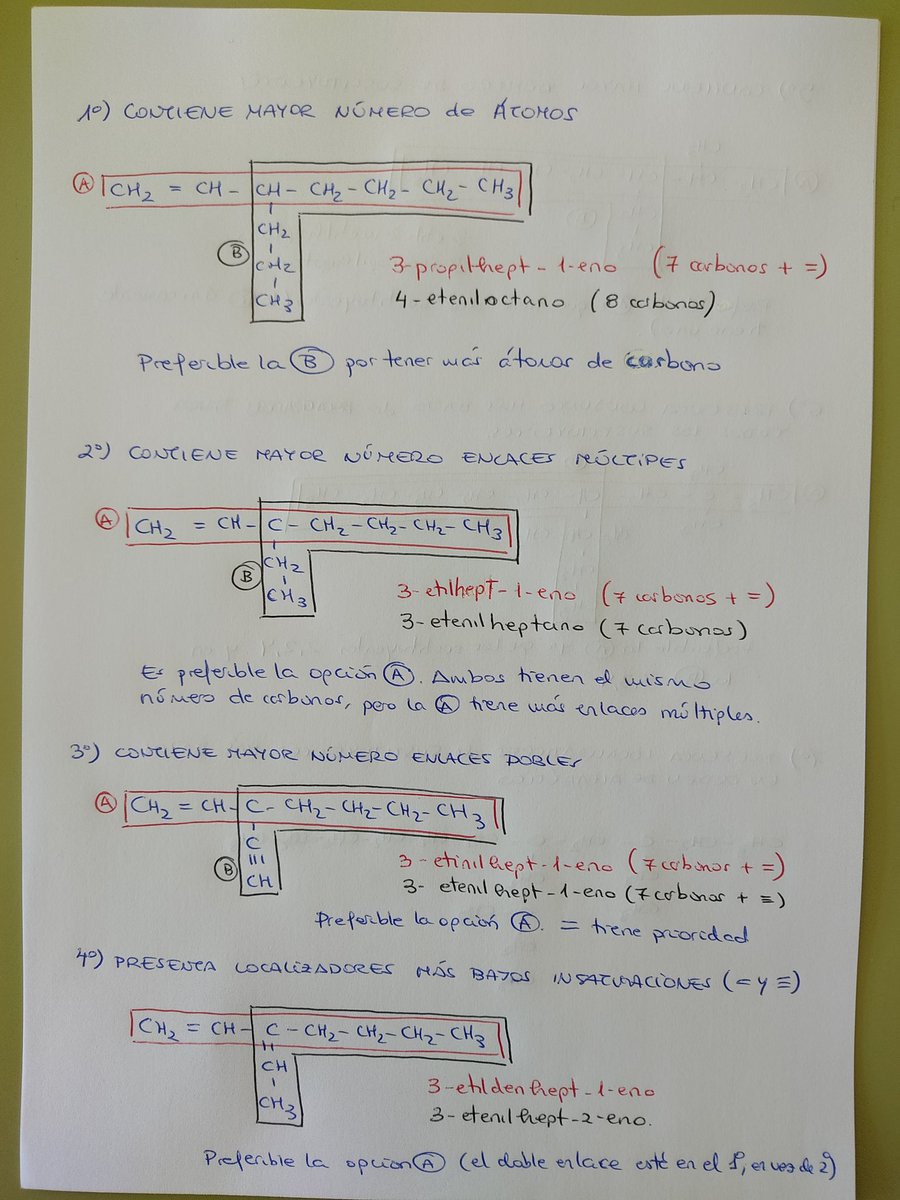 1º) CONTIENE MAYOR NÚMERO de ÁTOMOS
A CH2 = CH - CH - CH2 - CH2 - CH2 - CH3
CH2
B
CH2
CH3
3-propilhept-1-eno (7 carbonos + =)
4-eteniloctano (8 carbonos)
Preferible la B por tener más átomos de carbono
2º) CONTIENE MAYOR NÚMERO ENLACES MÚLTIPES
A CH2 = CH - C - CH2 - CH2 - CH2 - CH3
CH2
B
CH3
3-etilhept-1-eno (7 carbonos + =)
3-etenilheptano (7 carbonos)
Es preferible la opción A. Ambos tienen el mismo
número de carbonos, pero la A tiene más enlaces múltiples.
3º) CONTIENE MAYOR NÚMERO ENLACES DOBLES
A CH2 = CH - C - CH2 - CH2 - CH2 - CH3
C
≡
B CH
3-etinilhept-1-eno (7 carbonos + =)
3-etenilhept-1-eno (7 carbonos + ≡)
Preferible la opción A. = tiene prioridad
4º) PRESENTA LOCALIZADORES MÁS BAJOS INSATURACIONES (= y ≡)
CH2 = CH - C - CH2 - CH2 - CH2 - CH3
CH
CH3
3-etildenhept-1-eno
3-etenilhept-2-eno.
Preferible la opcion A (el doble enlace esté en el 1º, en vez de 2º)